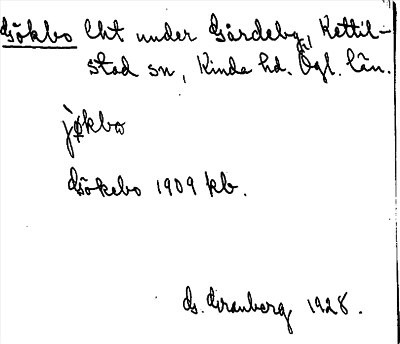 Gökbo lht under Gärdeby, Kettil-
stad sn, Kinda hd. Ögl. län.
jøkbω
Gökebo 1909 kb.
G. Granberg 1928.